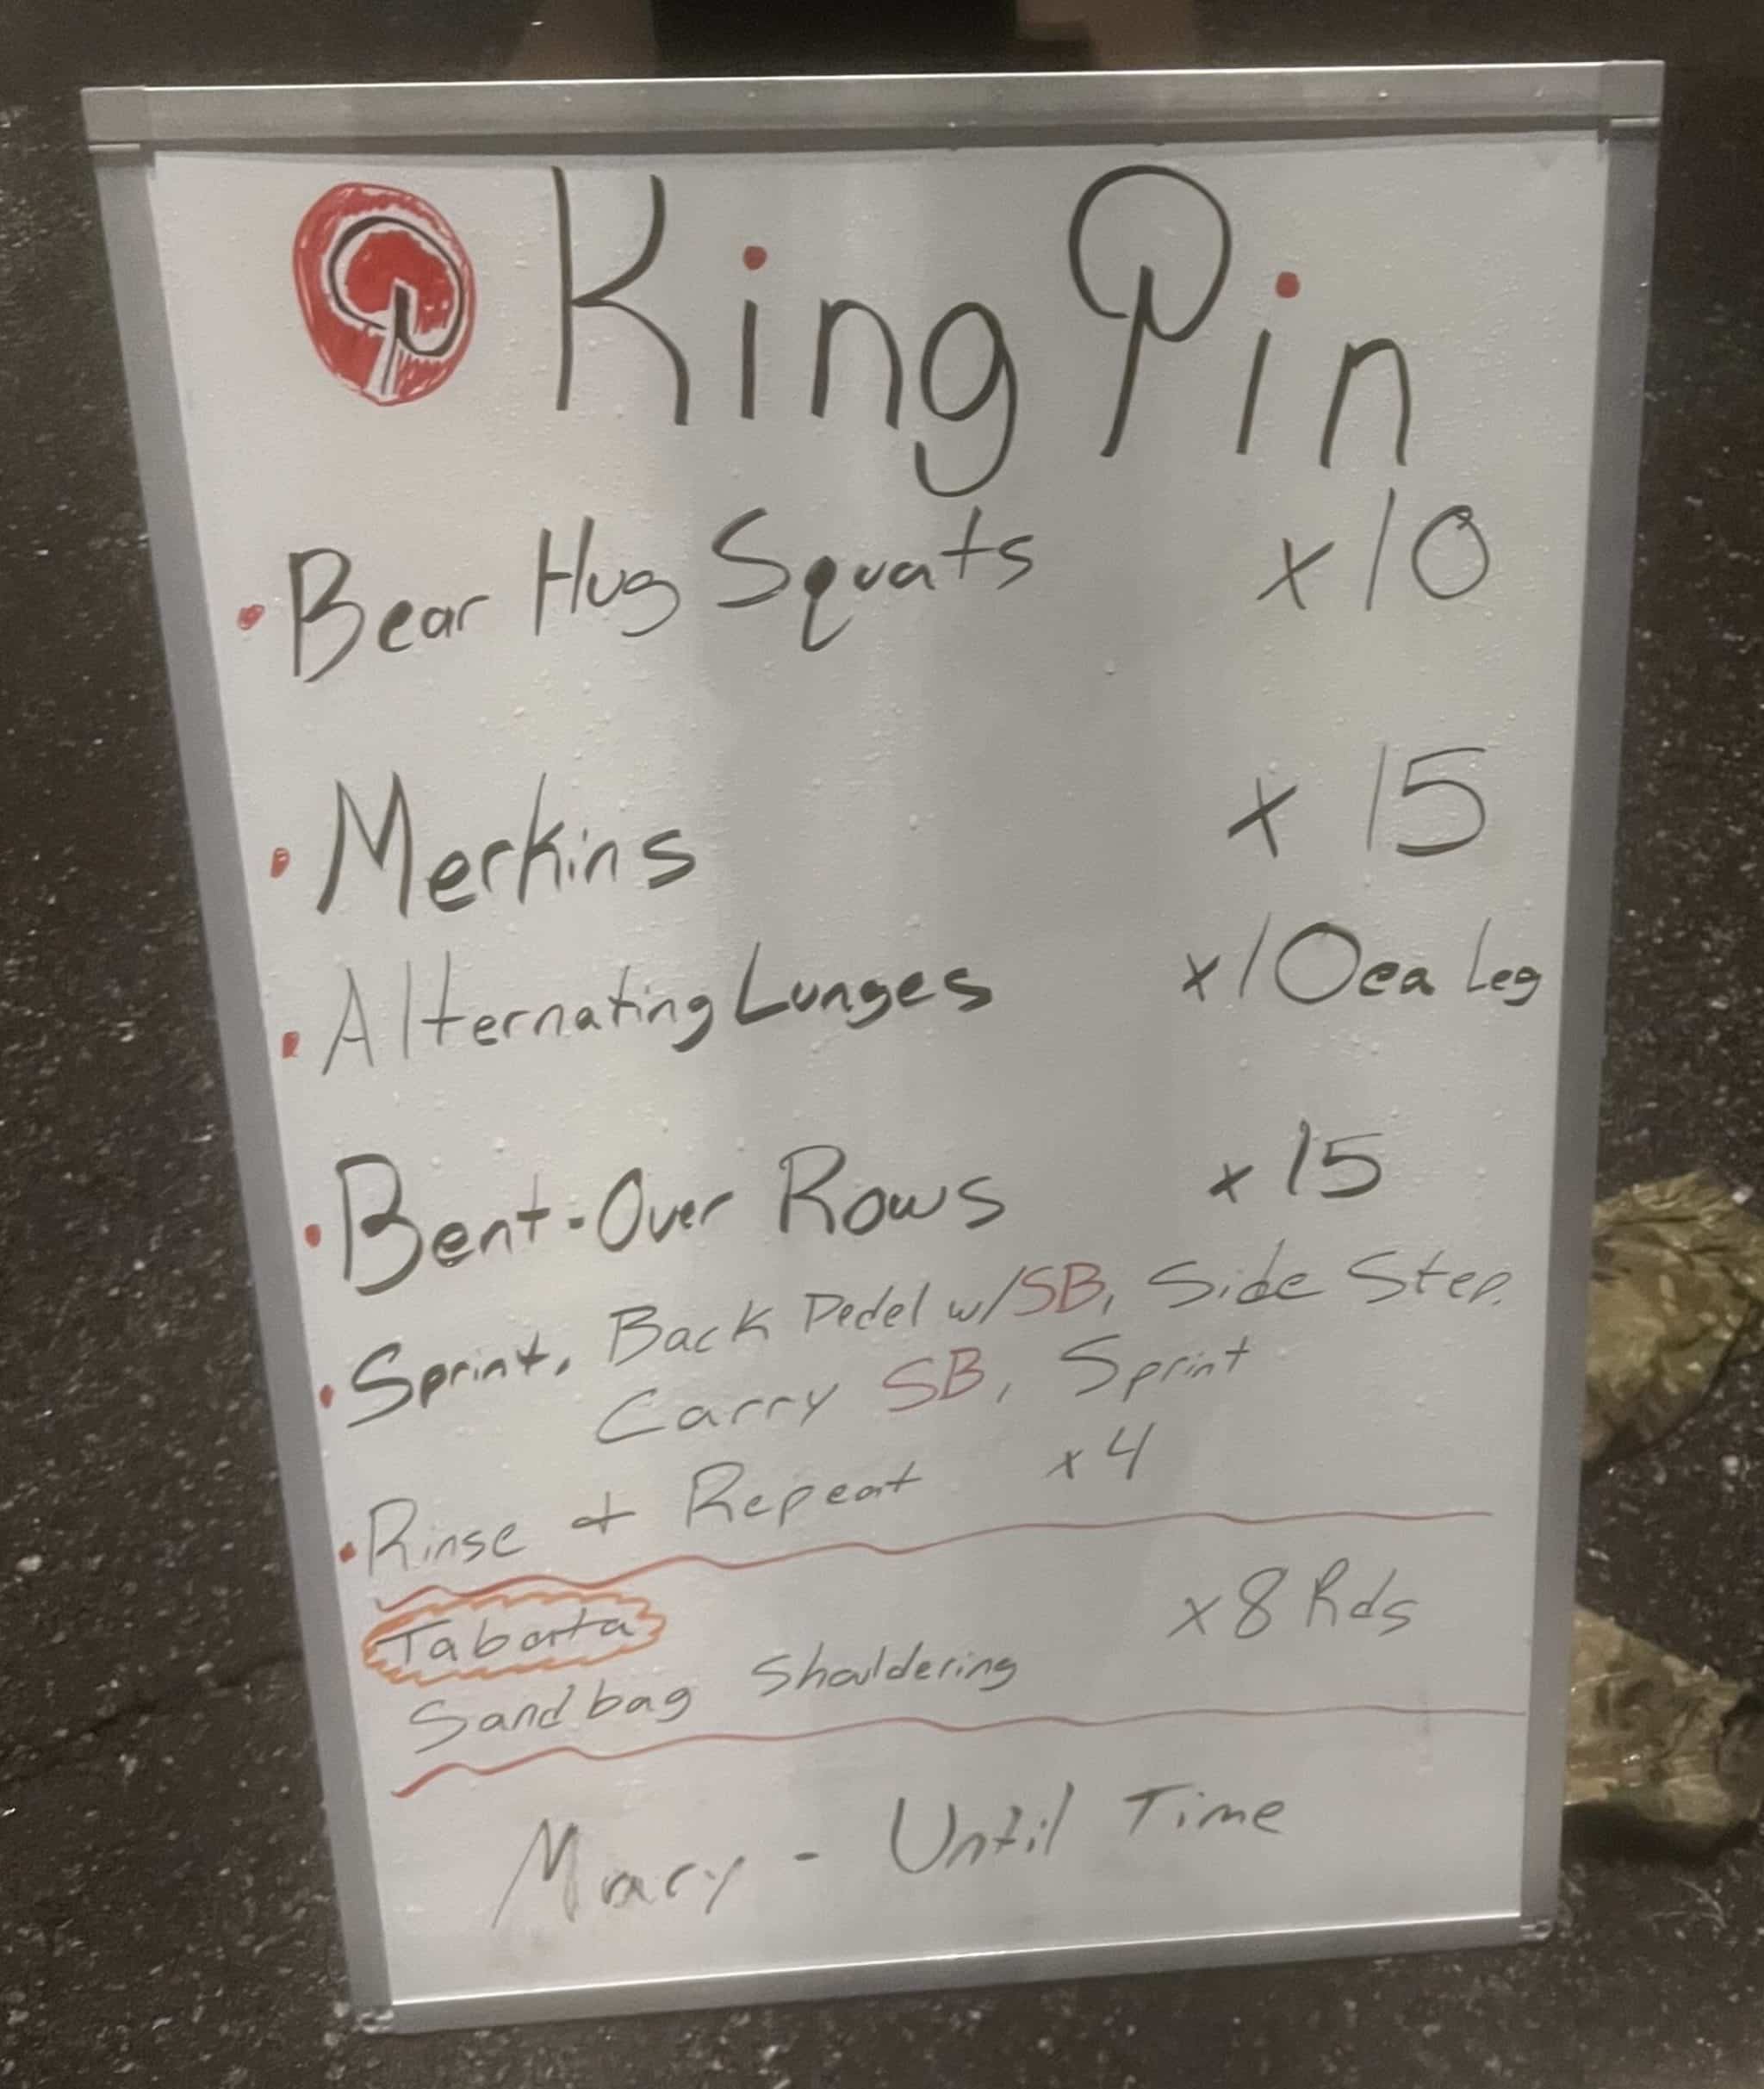 King Pin
• Bear Hug Squats x10
• Merkins x 15
• Alternating Lunges x10 ea Leg
• Bent-Over Rows x 15
• Sprint, Back Pedel w/SB, Side Step.
Carry SB, Sprint
• Rinse + Repeat x4
Tabata x8 Rds
Sandbag Shouldering
Mary - Until Time